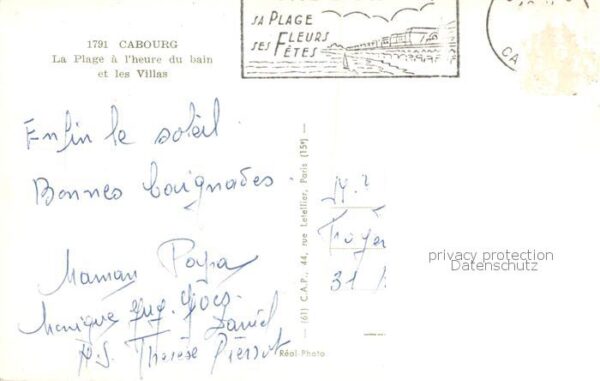 1791 CABOURG
La Plage à l'heure du bain
et les Villas
SA PLAGE
SES FLEURS
FÊTES
CA
Enfin le soleil.
Bonnes baignades.
Maman Papa
Monique
Daniel
Thérèse Pierrot
(61) C.A.P., 44, rue Letellier, Paris (15e)
Réal Photo
M.
31
privacy protection
Datenschutz